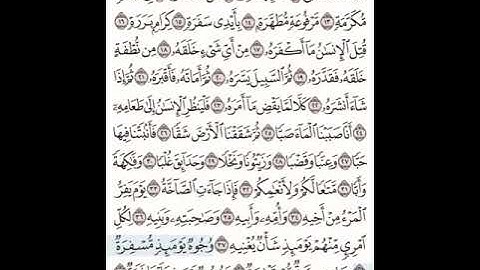 مُّكَرَّمَةٍ ١٣ مَّرْفُوعَةٍ مُّطَهَّرَةٍ ١٤ بِأَيْدِي سَفَرَةٍ ١٥ كِرَامٍ بَرَرَةٍ ١٦
قُتِلَ الْإِنسَٰنُ مَا أَكْفَرَهُۥ ١٧ مِنْ أَيِّ شَيْءٍ خَلَقَهُۥ ١٨ مِن نُّطْفَةٍ
خَلَقَهُۥ فَقَدَّرَهُۥ ١٩ ثُمَّ السَّبِيلَ يَسَّرَهُۥ ٢٠ ثُمَّ أَمَاتَهُۥ فَأَقْبَرَهُۥ ٢١ ثُمَّ إِذَا
شَاءَ أَنشَرَهُۥ ٢٢ كَلَّا لَمَّا يَقْضِ مَا أَمَرَهُۥ ٢٣ فَلْيَنظُرِ الْإِنسَٰنُ إِلَىٰ طَعَامِهِۦ
٢٤ أَنَّا صَبَبْنَا الْمَاءَ صَبًّا ٢٥ ثُمَّ شَقَقْنَا الْأَرْضَ شَقًّا ٢٦ فَأَنۢبَتْنَا فِيهَا
حَبًّا ٢٧ وَعِنَبًا وَقَضْبًا ٢٨ وَزَيْتُونًا وَنَخْلًا ٢٩ وَحَدَائِقَ غُلْبًا ٣٠ وَفَٰكِهَةً
وَأَبًّا ٣١ مَّتَٰعًا لَّكُمْ وَلِأَنْعَٰمِكُمْ ٣٢ فَإِذَا جَاءَتِ الصَّاخَّةُ ٣٣ يَوْمَ يَفِرُّ
الْمَرْءُ مِنْ أَخِيهِ ٣٤ وَأُمِّهِۦ وَأَبِيهِ ٣٥ وَصَٰحِبَتِهِۦ وَبَنِيهِ ٣٦ لِكُلِّ
امْرِئٍ مِّنْهُمْ يَوْمَئِذٍ شَأْنٌ يُغْنِيهِ ٣٧ وُجُوهٌ يَوْمَئِذٍ مُّسْفِرَةٌ